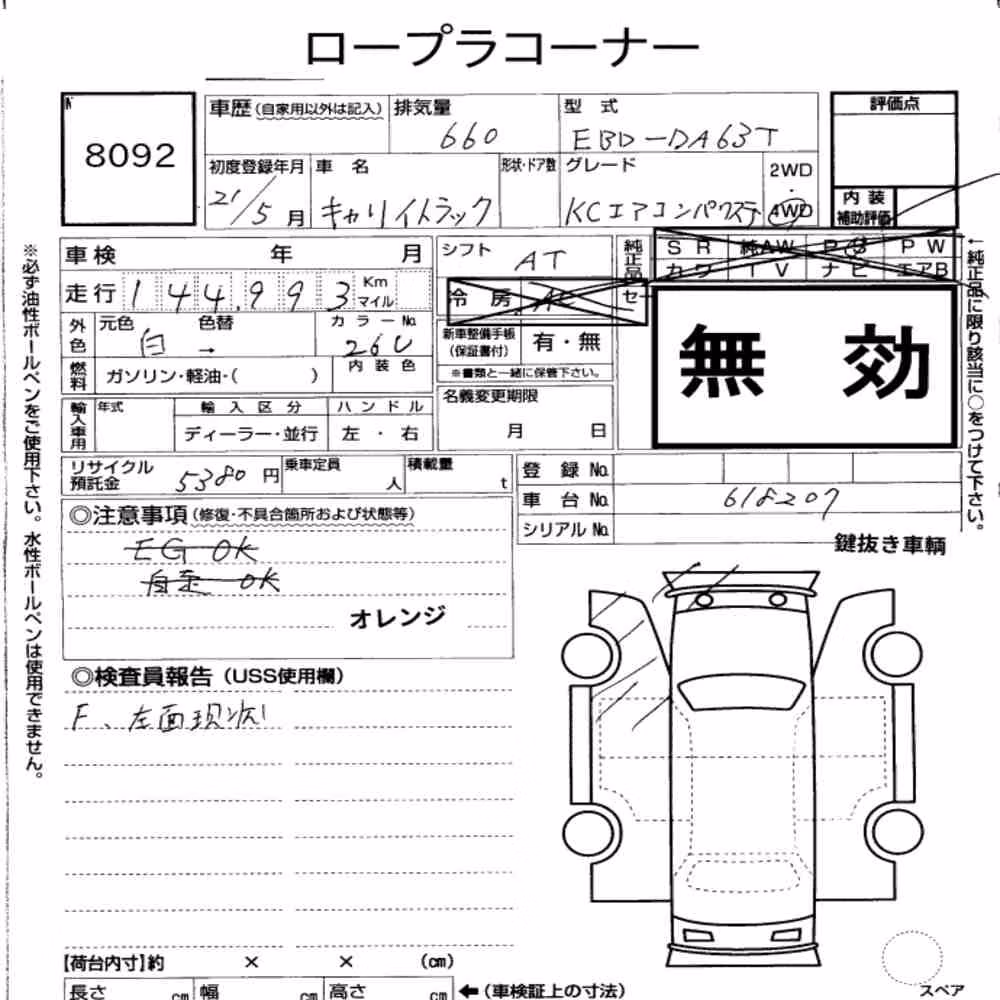 ロープラコーナー
8092
車歴 (自家用以外は記入) 排気量 型式
660 EBD-DA63T
初度登録年月 車名 形状・ドア数 グレード 2WD
・
21/5月 キャリイトラック KCエアコンパワステ 4WD
評価点
内装
補助評価
車検 年 月
シフト AT
純正品
SR 純AW PS PW
カワ TV ナビ エアB
走行 144,993 Km マイル
冷房 AC
セ
外色 元色 色替 カラーNo.
白 → 26U
新車整備手帳
(保証書付) 有・無
※書類と一緒に保管下さい。
無効
燃料 ガソリン・軽油・( ) 内装色
輸入車用 年式 輸入区分 ハンドル
ディーラー・並行 左・右
名義変更期限
月 日
リサイクル
預託金 5380円 乗車定員 人 積載量 t
登録No.
車台No. 618207
シリアルNo.
◎注意事項 (修復・不具合箇所および状態等)
EG OK
自走 OK
オレンジ
鍵抜き車輌
◎検査員報告 (USS使用欄)
F、左面現状
【荷台内寸】約 × × (cm)
長さ cm 幅 cm 高さ cm ←(車検証上の寸法)
スペア
※必ず油性ボールペンをご使用下さい。水性ボールペンは使用できません。
←純正品に限り該当に○をつけて下さい。